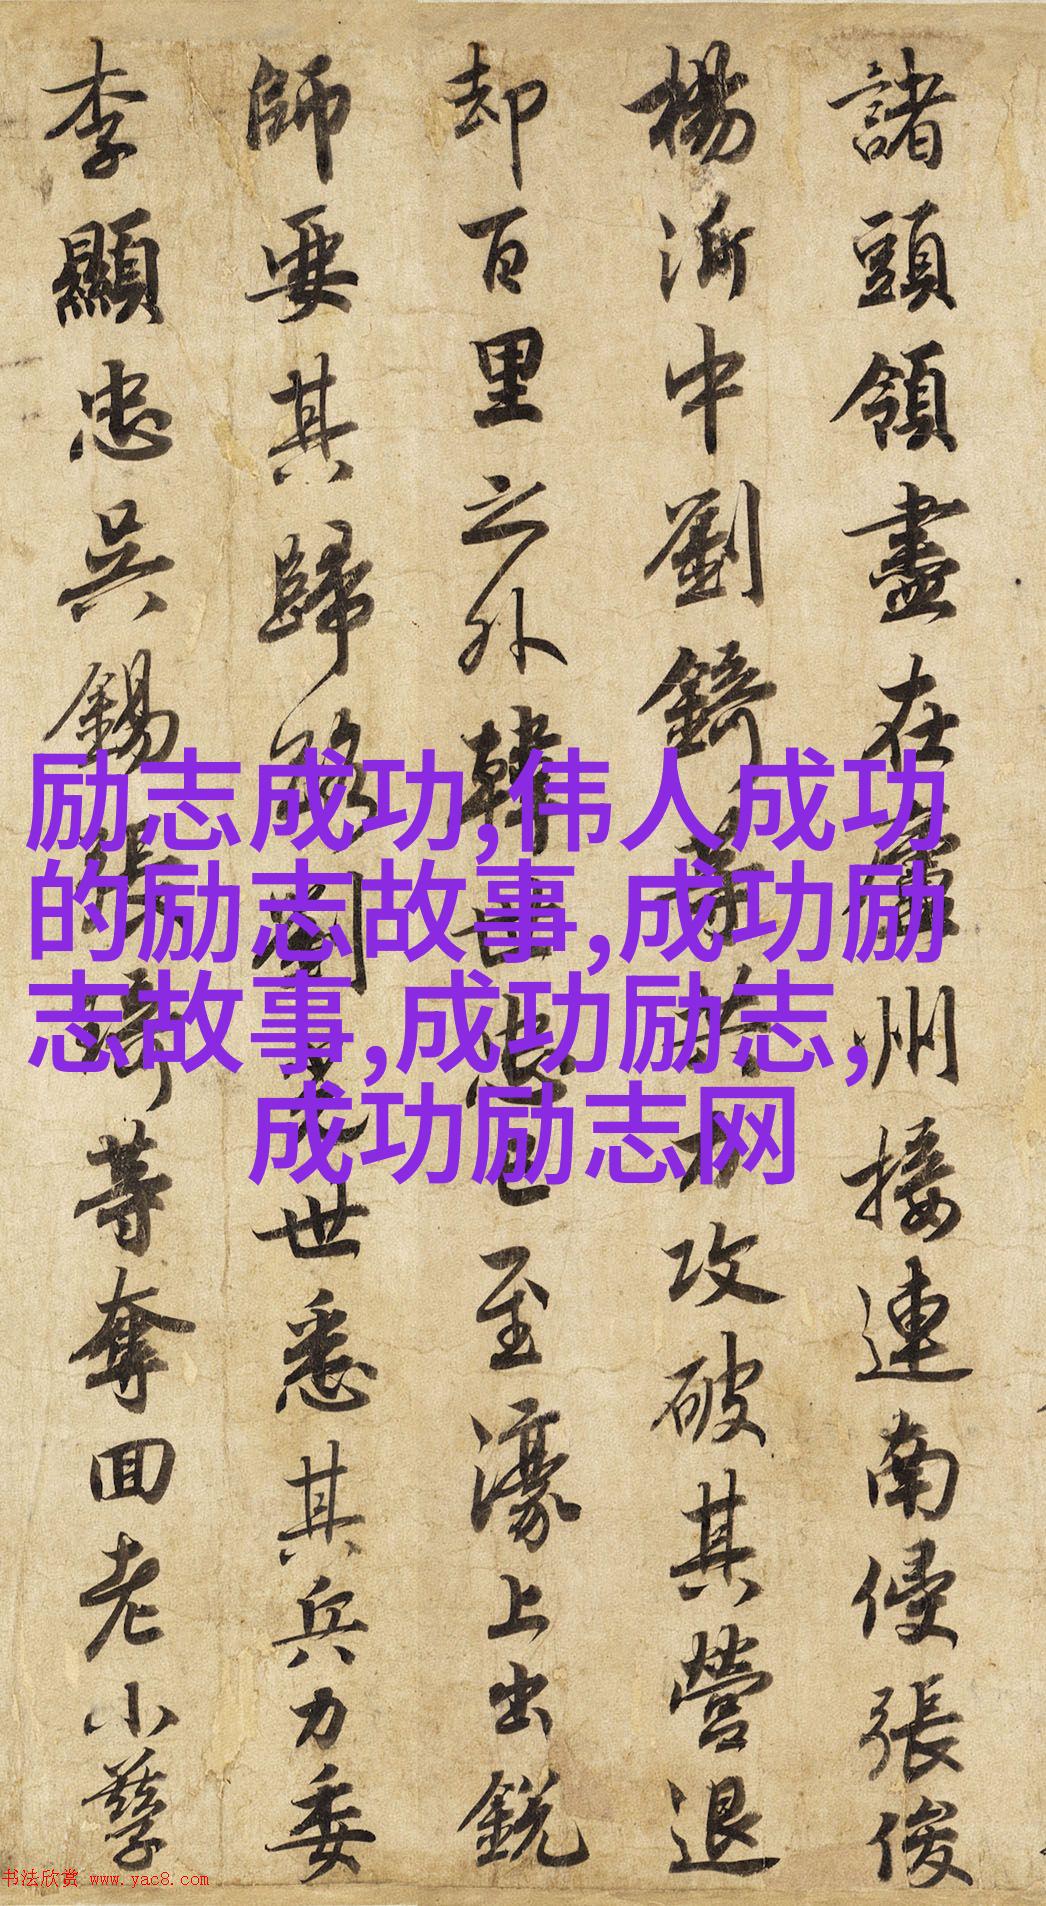 諸頭領盡在廬州接連南侵張俊
楊沂中劉錡等於功攻破其營退
却百里之外韓世忠已至濠上出銳
師要其歸路劉光世悉其兵力委
李顯忠吳錫張琦等奪回老小孳
励志成功,伟人成功
的励志故事,成功励
志故事,成功励志,
成功励志网
书法欣赏 www.yac8.com